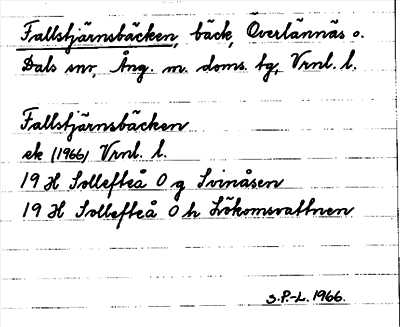 Fallstjärnsbäcken, bäck, Överlännäs o.
Dals snr, Ång. m. doms. tg, Vrnl. l.
Fallstjärnsbäcken
ek (1966) Vrnl. l.
19 H Sollefteå 0 g Svinåsen
19 H Sollefteå 0 h Lökomsvattnen
S.P.-L. 1966.